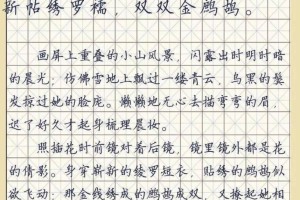 新帖绣罗襦，双双金鹧鸪。
画屏上重叠的小山风景，闪露出时明时暗
的晨光；仿佛雪地上飘过一缕青云，乌黑的鬓
发掠过她的脸庞。懒懒地无心去描弯弯的眉，
迟了好久才起身梳理晨妆。
照插花时前镜对着后镜，镜里镜外都是花
的倩影。身穿崭新的绫罗短衣，贴绣的鹧鸪似
欲飞动；那金线绣成的鹧鸪成双，又撩起她相